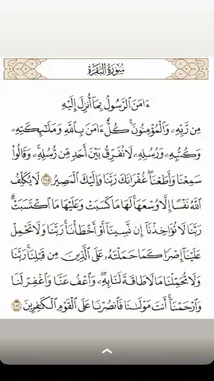 سُورَةُ البَقَرَةِ
ءَامَنَ الرَّسُولُ بِمَا أُنزِلَ إِلَيْهِ
مِن رَّبِّهِ وَالْمُؤْمِنُونَ كُلٌّ ءَامَنَ بِاللَّهِ وَمَلَائِكَتِهِ
وَكُتُبِهِ وَرُسُلِهِ لَا نُفَرِّقُ بَيْنَ أَحَدٍ مِّن رُّسُلِهِ وَقَالُوا
سَمِعْنَا وَأَطَعْنَا غُفْرَانَكَ رَبَّنَا وَإِلَيْكَ الْمَصِيرُ ٢٨٥ لَا يُكَلِّفُ
اللَّهُ نَفْسًا إِلَّا وُسْعَهَا لَهَا مَا كَسَبَتْ وَعَلَيْهَا مَا اكْتَسَبَتْ
رَبَّنَا لَا تُؤَاخِذْنَا إِن نَّسِينَا أَوْ أَخْطَأْنَا رَبَّنَا وَلَا تَحْمِلْ
عَلَيْنَا إِصْرًا كَمَا حَمَلْتَهُ عَلَى الَّذِينَ مِن قَبْلِنَا رَبَّنَا
وَلَا تُحَمِّلْنَا مَا لَا طَاقَةَ لَنَا بِهِ وَاعْفُ عَنَّا وَاغْفِرْ لَنَا
وَارْحَمْنَا أَنتَ مَوْلَانَا فَانصُرْنَا عَلَى الْقَوْمِ الْكَافِرِينَ ٢٨٦